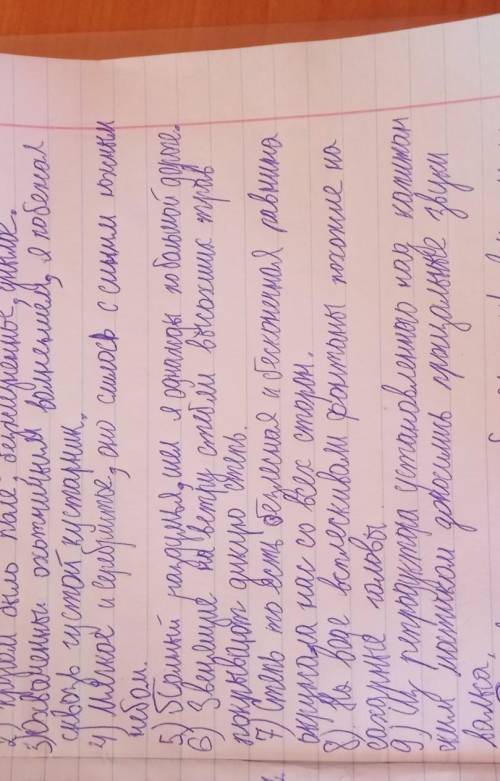 3) Взволнованный охотничьим волнением, я побежал
сквозь густой кустарник.
4) Мягкое и серебристое, оно слилось с синим южным
небом.
5) Томный шел я однажды по большой дороге.
6) Звенящие на ветру стебли высоких трав
покрывают дикую степь.
7) Степь то есть безлесная и бесконечная равнина
окружала нас со всех сторон.
8) На воде всплескивали фонтаны похожие на
сахарные головы.
9) Из репродуктора установленного над капитан
ским мостиком доносились прощальные звуки
вальса.